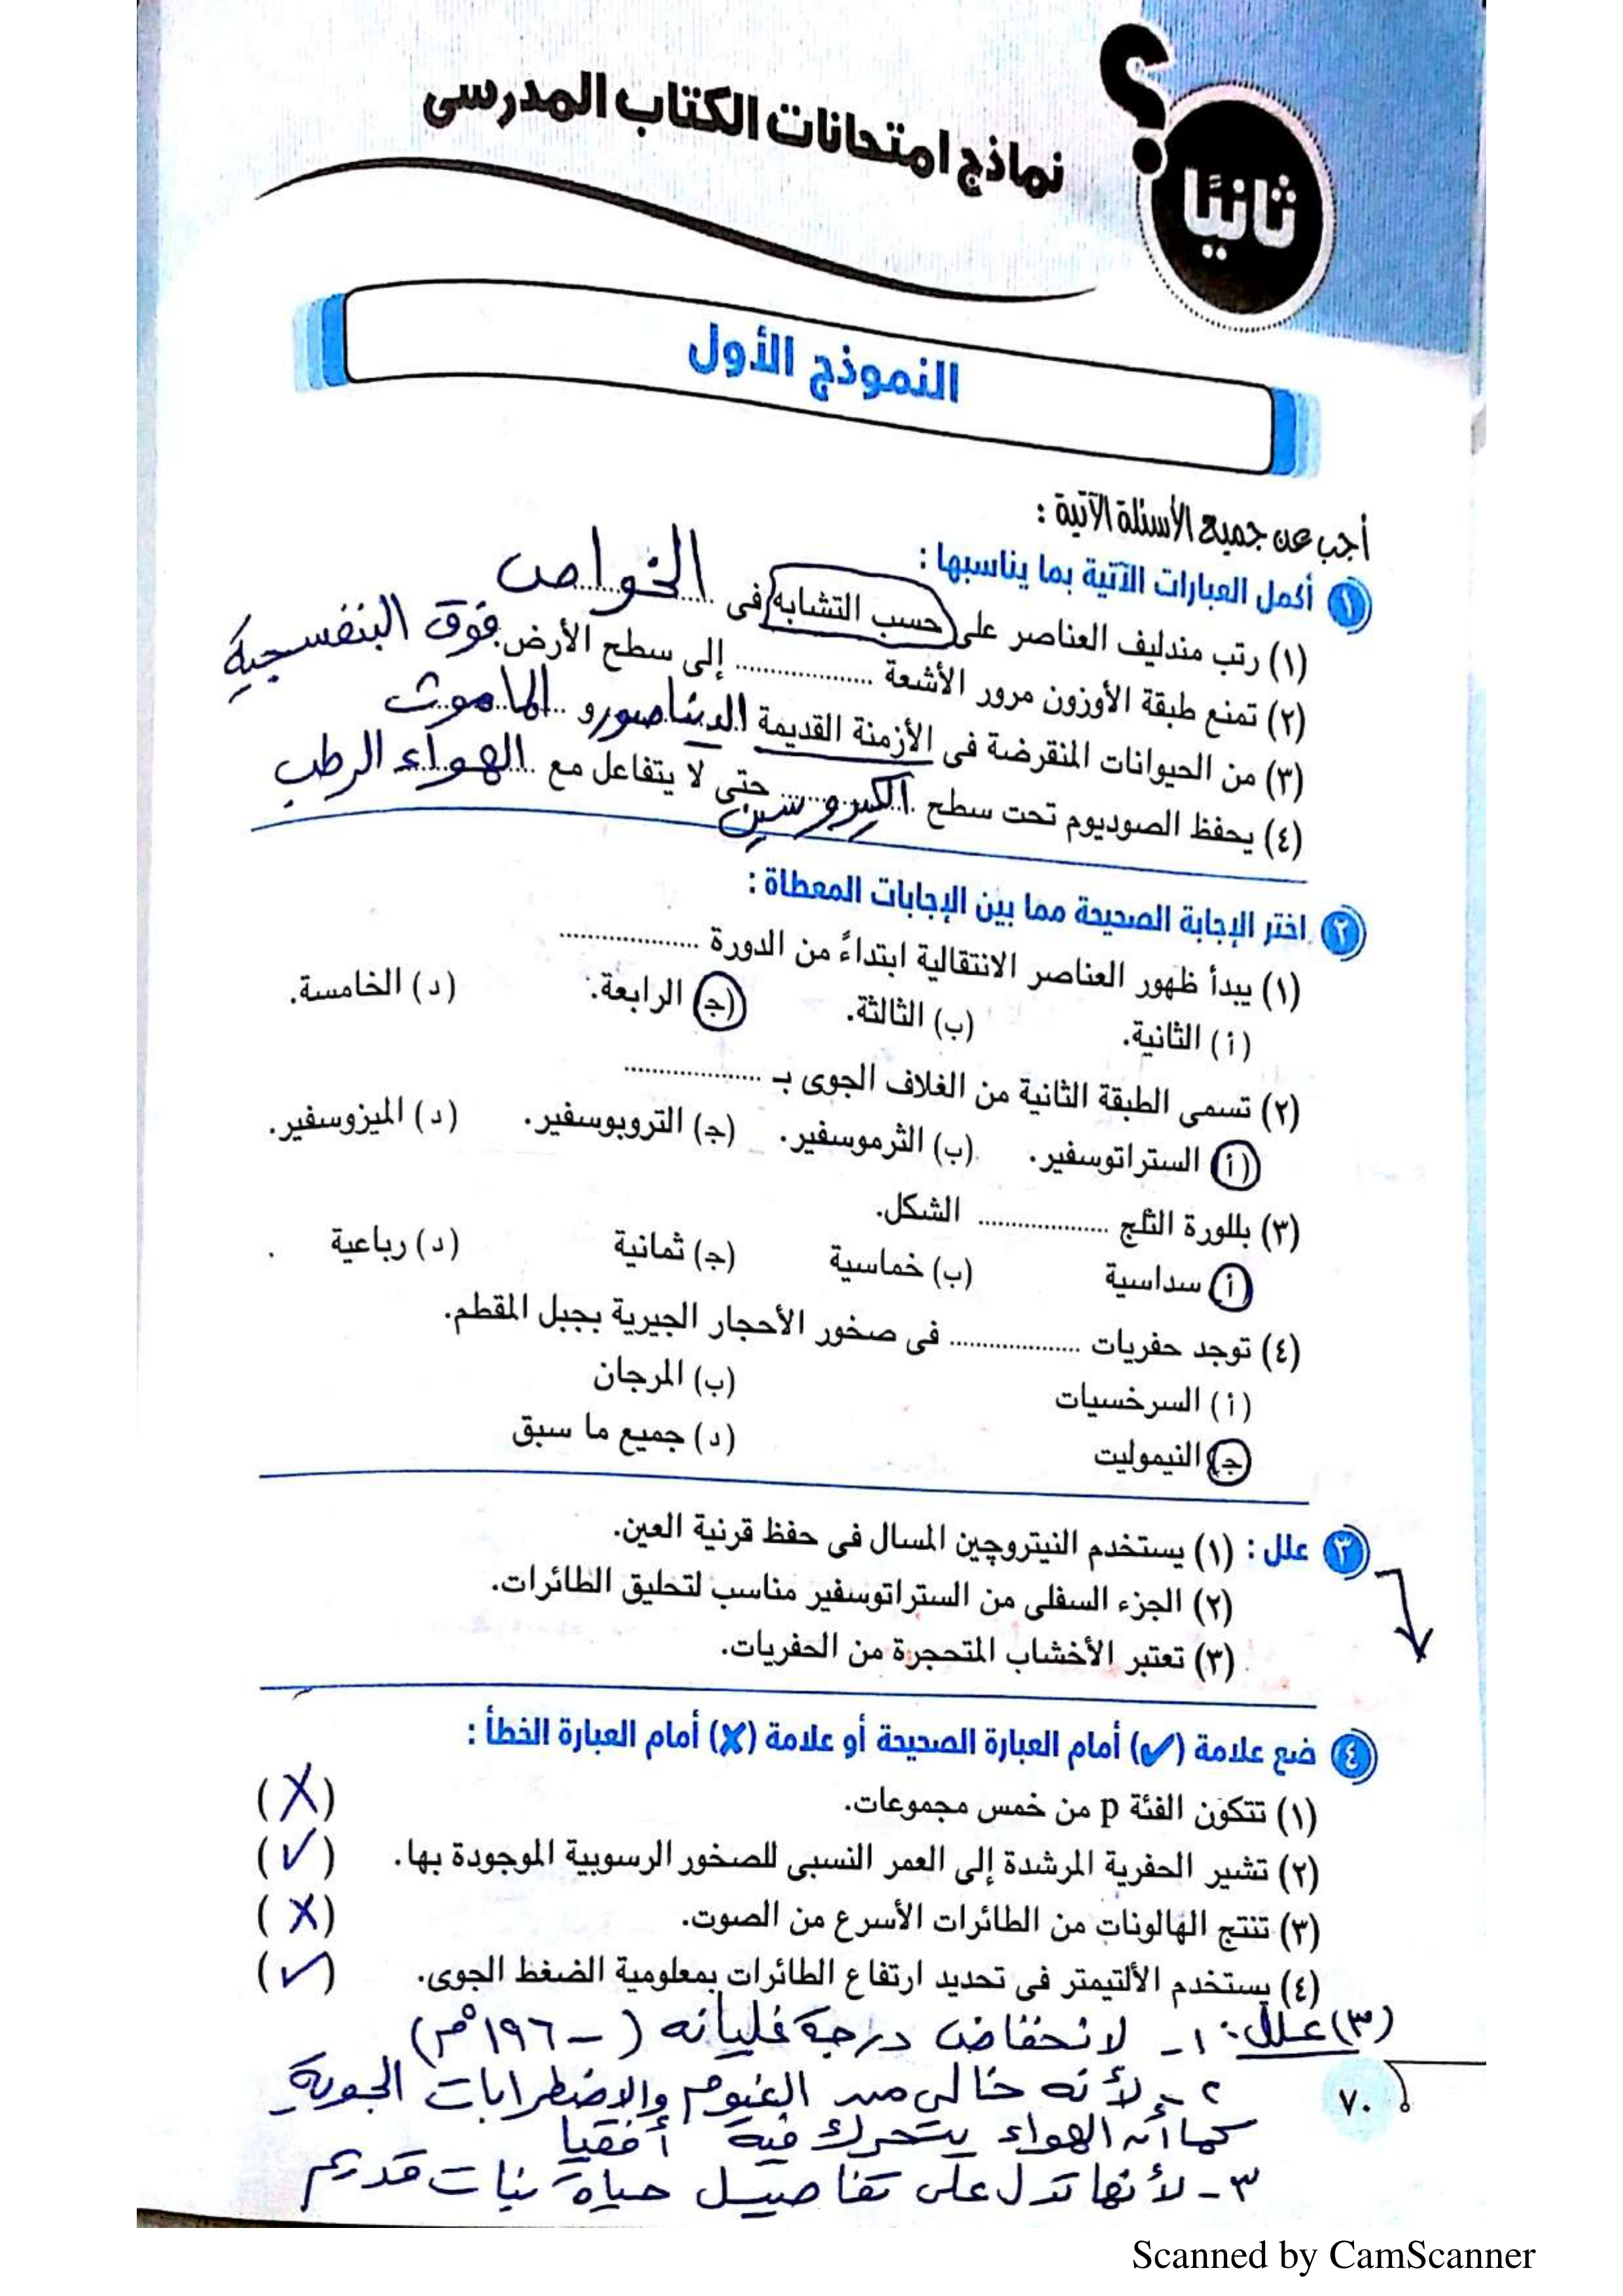 ثانيًا
؟
نماذج امتحانات الكتاب المدرسى
النموذج الأول
أجب عن جميع الأسئلة الآتية :
١ أكمل العبارات الآتية بما يناسبها :
(١) رتب مندليف العناصر على حسب التشابه فى الخواص
(٢) تمنع طبقة الأوزون مرور الأشعة .................. إلى سطح الأرض. فوق البنفسجية
(٣) من الحيوانات المنقرضة فى الأزمنة القديمة الديناصور و الماموث
(٤) يحفظ الصوديوم تحت سطح الكيروسين حتى لا يتفاعل مع الهواء الرطب
٢ اختر الإجابة الصحيحة مما بين الإجابات المعطاة :
(١) يبدأ ظهور العناصر الانتقالية ابتداءً من الدورة ..................
(أ) الثانية. (ب) الثالثة. (ج) الرابعة. (د) الخامسة.
(٢) تسمى الطبقة الثانية من الغلاف الجوى بـ ..................
(أ) الستراتوسفير. (ب) الثرموسفير. (ج) التروبوسفير. (د) الميزوسفير.
(٣) بللورة الثلج .................. الشكل.
(أ) سداسية (ب) خماسية (ج) ثمانية (د) رباعية
(٤) توجد حفريات .................. فى صخور الأحجار الجيرية بجبل المقطم.
(أ) السرخسيات (ب) المرجان
(ج) النيموليت (د) جميع ما سبق
٣ علل : (١) يستخدم النيتروچين المسال فى حفظ قرنية العين.
(٢) الجزء السفلى من الستراتوسفير مناسب لتحليق الطائرات.
(٣) تعتبر الأخشاب المتحجرة من الحفريات.
٤ ضع علامة (✔) أمام العبارة الصحيحة أو علامة (✘) أمام العبارة الخطأ :
(١) تتكون الفئة p من خمس مجموعات. (X)
(٢) تشير الحفرية المرشدة إلى العمر النسبى للصخور الرسوبية الموجودة بها. (✓)
(٣) تنتج الهالونات من الطائرات الأسرع من الصوت. (X)
(٤) يستخدم الألتيمتر فى تحديد ارتفاع الطائرات بمعلومية الضغط الجوى. (✓)
(٣) علل: ١- لانخفاض درجة غليانه (-١٩٦°م)
٢- لأنه خالى من الغيوم والاضطرابات الجوية
كما أن الهواء يتحرك فيه أفقيا
٣- لأنها تدل على تفاصيل حياة نبات قديم
٧٠
Scanned by CamScanner